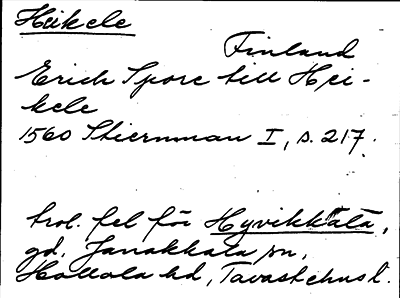 Heikele
Finland
Erich Spore till Hei-
kele
1560 Stiernman I, s. 217.
trol. fel för Hyvikkälä,
gd, Janakkala sn,
Hollola hd, Tavastehusl.